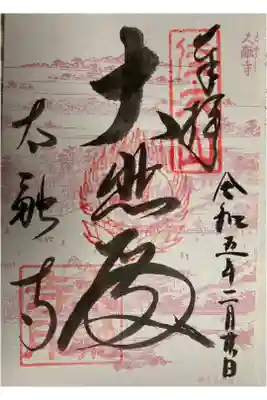 太融寺
奉拝
令和五年二月廿日
大悲殿
太融寺